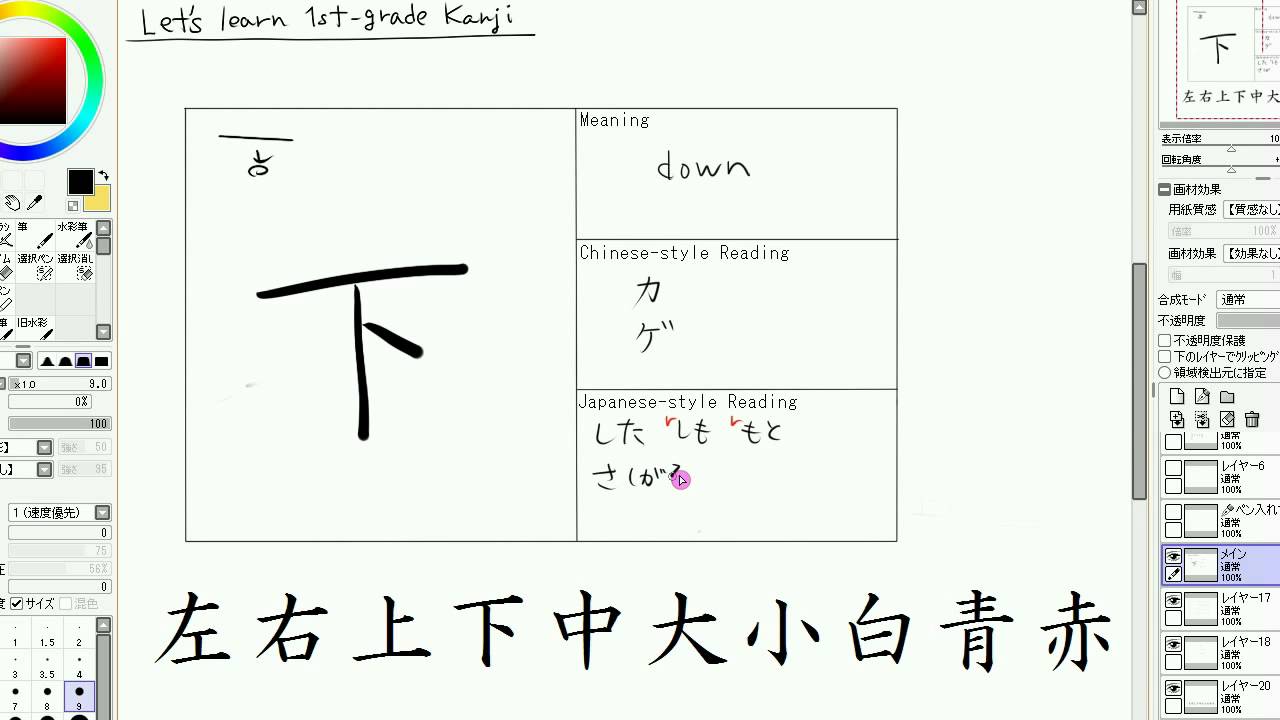 Let's learn 1st-grade Kanji
下
Meaning
down
Chinese-style Reading
カ
ゲ
Japanese-style Reading
した しも もと
さ(がる
左右上下中大小白青赤
左右上下中大
表示倍率 10
回転角度
画材効果
用紙質感 【質感なし】
倍率 100%
画材効果 【効果なし】
幅 1
合成モード 通常
不透明度
不透明度保護
下のレイヤーでクリッピング
領域検出元に指定
通常
100%
レイヤー6
通常
100%
ペン入れ
通常
100%
メイン
通常
100%
レイヤー17
通常
100%
レイヤー18
通常
100%
レイヤー20
通常
100%
筆 水彩筆
選択ペン 選択消し
旧水彩
x1.0 9.0
0%
100
強さ 50
強さ 35
1 (速度優先)
0
75
56%
0
サイズ 混色
1 1.5 2
3 3.5 4
7 8 9